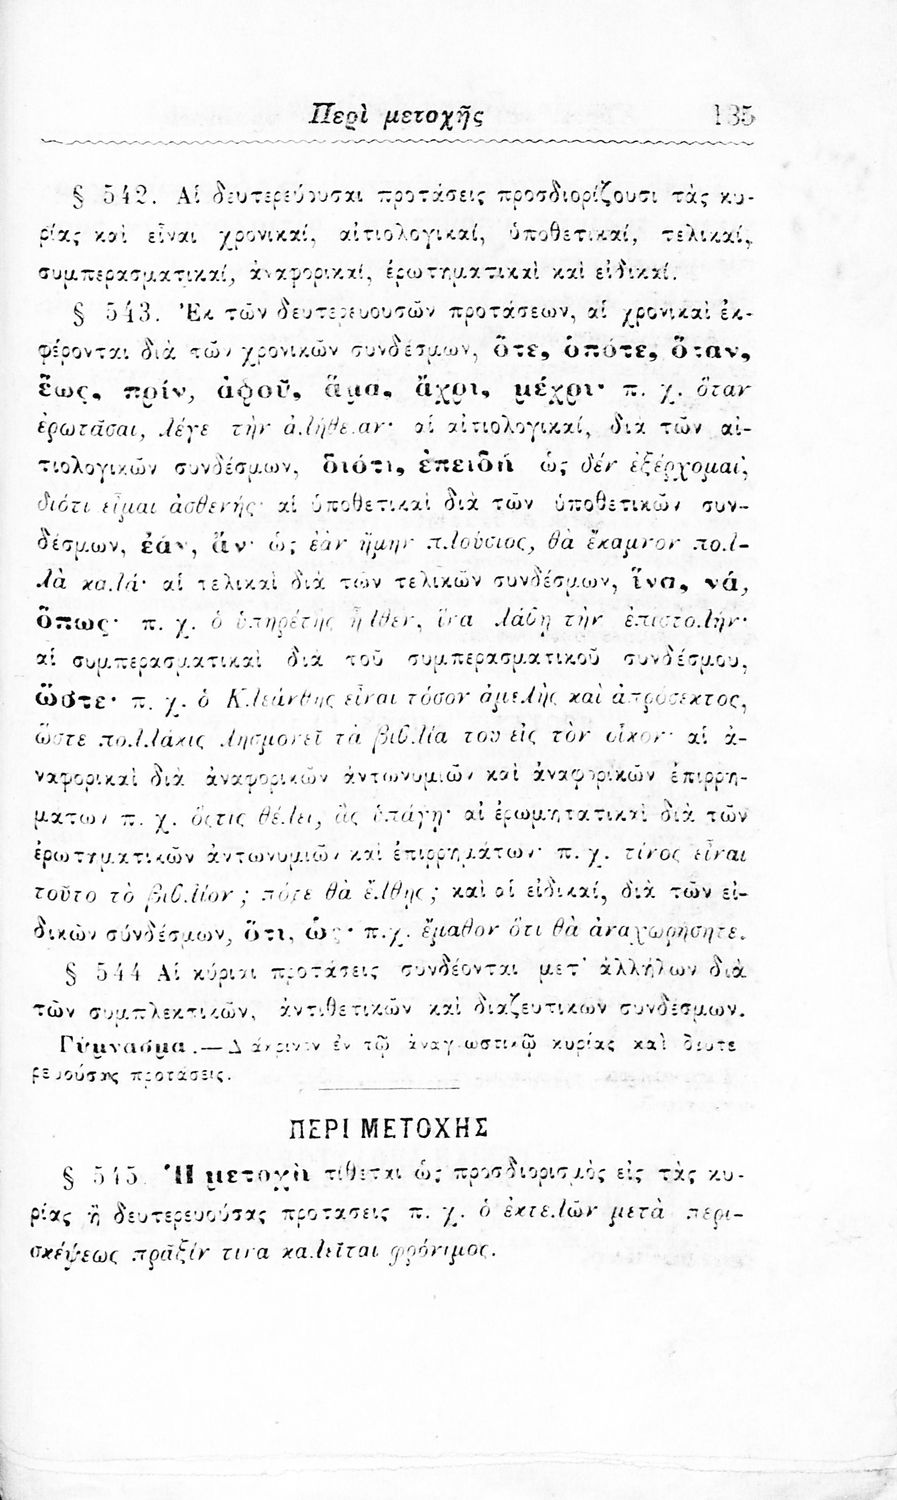 Περὶ μετοχῆς 135
§ 542. Αἱ δευτερεύουσαι προτάσεις προσδιορίζουσι τὰς κυ-
ρίας καὶ εἶναι χρονικαί, αἰτιολογικαί, ὑποθετικαί, τελικαί,
συμπερασματικαί, ἀναφορικαί, ἐρωτηματικαὶ καὶ εἰδικαί.
§ 543. Ἐκ τῶν δευτερευουσῶν προτάσεων, αἱ χρονικαὶ ἐκ-
φέρονται διὰ τῶν χρονικῶν συνδέσμων, ὅτε, ὁπότε, ὅταν,
ἕως, πρίν, ἀφοῦ, ἅμα, ἄχρι, μέχρι· π. χ. ὅταν
ἐρωτᾶσαι, λέγε τὴν ἀλήθειαν· αἱ αἰτιολογικαί, διὰ τῶν αἰ-
τιολογικῶν συνδέσμων, διότι, ἐπειδὴ ὡς δέν ἐξέρχομαι,
διότι εἶμαι ἀσθενής· αἱ ὑποθετικαὶ διὰ τῶν ὑποθετικῶν συν-
δέσμων, ἐάν, ἄν· ὡς ἐὰν ἤμην πλούσιος, θὰ ἔκαμνον πολ-
λὰ καλά· αἱ τελικαὶ διὰ τῶν τελικῶν συνδέσμων, ἵνα, νά,
ὅπως· π. χ. ὁ ὑπηρέτης ἦλθεν, ἵνα λάβῃ τὴν ἐπιστολήν·
αἱ συμπερασματικαὶ διὰ τοῦ συμπερασματικοῦ συνδέσμου,
ὥστε· π. χ. ὁ Κλεάνθης εἶναι τόσον ἀμελὴς καὶ ἀπρόσεκτος,
ὥστε πολλάκις λησμονεῖ τὰ βιβλία του εἰς τὸν οἶκον· αἱ ἀ-
ναφορικαὶ διὰ ἀναφορικῶν ἀντωνυμιῶν καὶ ἀναφορικῶν ἐπιρρη-
μάτων π. χ. ὅςτις θέλει, ἂς ὑπάγῃ· αἱ ἐρωμητατικαὶ διὰ τῶν
ἐρωτηματικῶν ἀντωνυμιῶν καὶ ἐπιρρημάτων· π. χ. τίνος εἶναι
τοῦτο τὸ βιβλίον ; πότε θὰ ἔλθῃς ; καὶ αἱ εἰδικαί, διὰ τῶν εἰ-
δικῶν συνδέσμων, ὅτι, ὡς· π.χ. ἔμαθον ὅτι θὰ ἀναχωρήσητε.
§ 544 Αἱ κύριαι προτάσεις συνδέονται μετ' ἀλλήλων διὰ
τῶν συμπλεκτικῶν, ἀντιθετικῶν καὶ διαζευτικῶν συνδέσμων.
Γύμνασμα.— Διάκρινον ἐν τῷ ἀναγνωστικῷ κυρίας καὶ δευτε
ρευούσας προτάσεις.
ΠΕΡΙ ΜΕΤΟΧΗΣ
§ 545. Ἡ μετοχὴ τίθεται ὡς προσδιορισμὸς εἰς τὰς κυ-
ρίας ἢ δευτερευούσας προτασεις π. χ. ὁ ἐκτελῶν μετὰ περι-
σκέψεως πρᾶξίν τινα καλεῖται φρόνιμος.